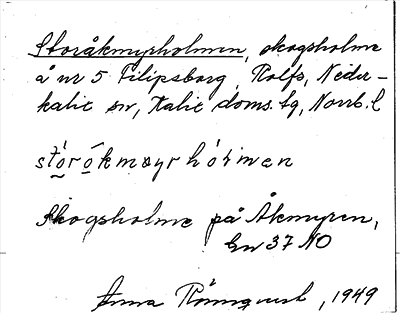 Storåkmyrholmen, skogsholme
å nr 5 Filipsborg, Rolfs, Neder-
kalix sn, Kalix doms. tg, Norrb. l
Skogsholme på Åkmyren,
Gw 37 NO
Anna Rönnqvist, 1949